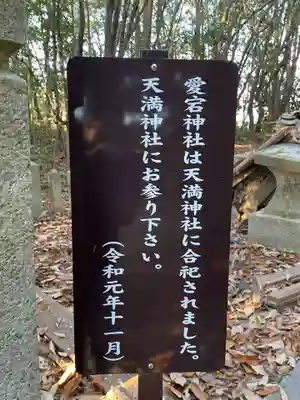 愛宕神社は天満神社に合祀されました。
天満神社にお参り下さい。
（令和元年十一月）